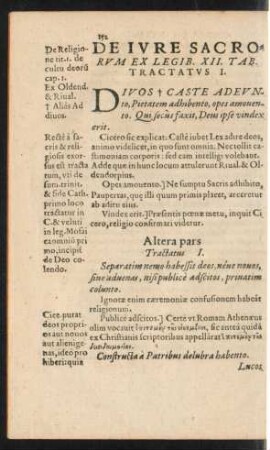 DE IVRE SACRO-
RVM EX LEGIB. XII. TAB.
TRACTATVS I.
De Religio-
ne tit. 1. de
cultu deorū
cap. 1.
Ex Oldend.
& Riual.
† Aliàs Ad
diuum.
DIVOS † CASTE ADEVN-
to, Pietatem adhibento, opes amouen-
to. Qui secùs faxit, Deus ipse vindex
erit.
Rectè à sa-
cris & re-
ligiosa exor-
sus est tracta
tus, vti de
sum. trinit.
& fide Cath.
primo loco
tractatur in
C. & veluti
in leg. Mosis
exomniū pri
mo, incipit
de Deo co-
lendo.
Cicero sic explicat. Castè iubet Lex adire deos,
animo videlicet, in quo sunt omnia. Nec tollit ca-
stimoniam corporis: sed eam intelligi volebant.
Adde que in hunc locum attulerunt Riual. & Ol-
dendorpius.
Opes amouento.] Ne sumptu Sacris adhibito,
Paupertas, que illi quum primis placet, arceretur
ab aditu suius.
Vindex erit.] Præsentis pœnæ metu, inquit Ci
cero, religio confirmari videtur.
Altera pars
Tractatus I.
Separatim nemo habessit deos, néue nouos,
siue aduenas, nisi publicè adscitos, priuatim
colunto.
Ignotæ enim cæremoniæ confusionem habent
religionum.
Cice. putat
deos propri-
os aut nouos
aut alienige-
nas, ideo pro
hiberi: quia
Publicè adscitos.] Certè vt Romam Athenæus
olim vocauit
ex Christianis scriptoribus appellârat
Constructa à Patribus delubra habento.
Lucos